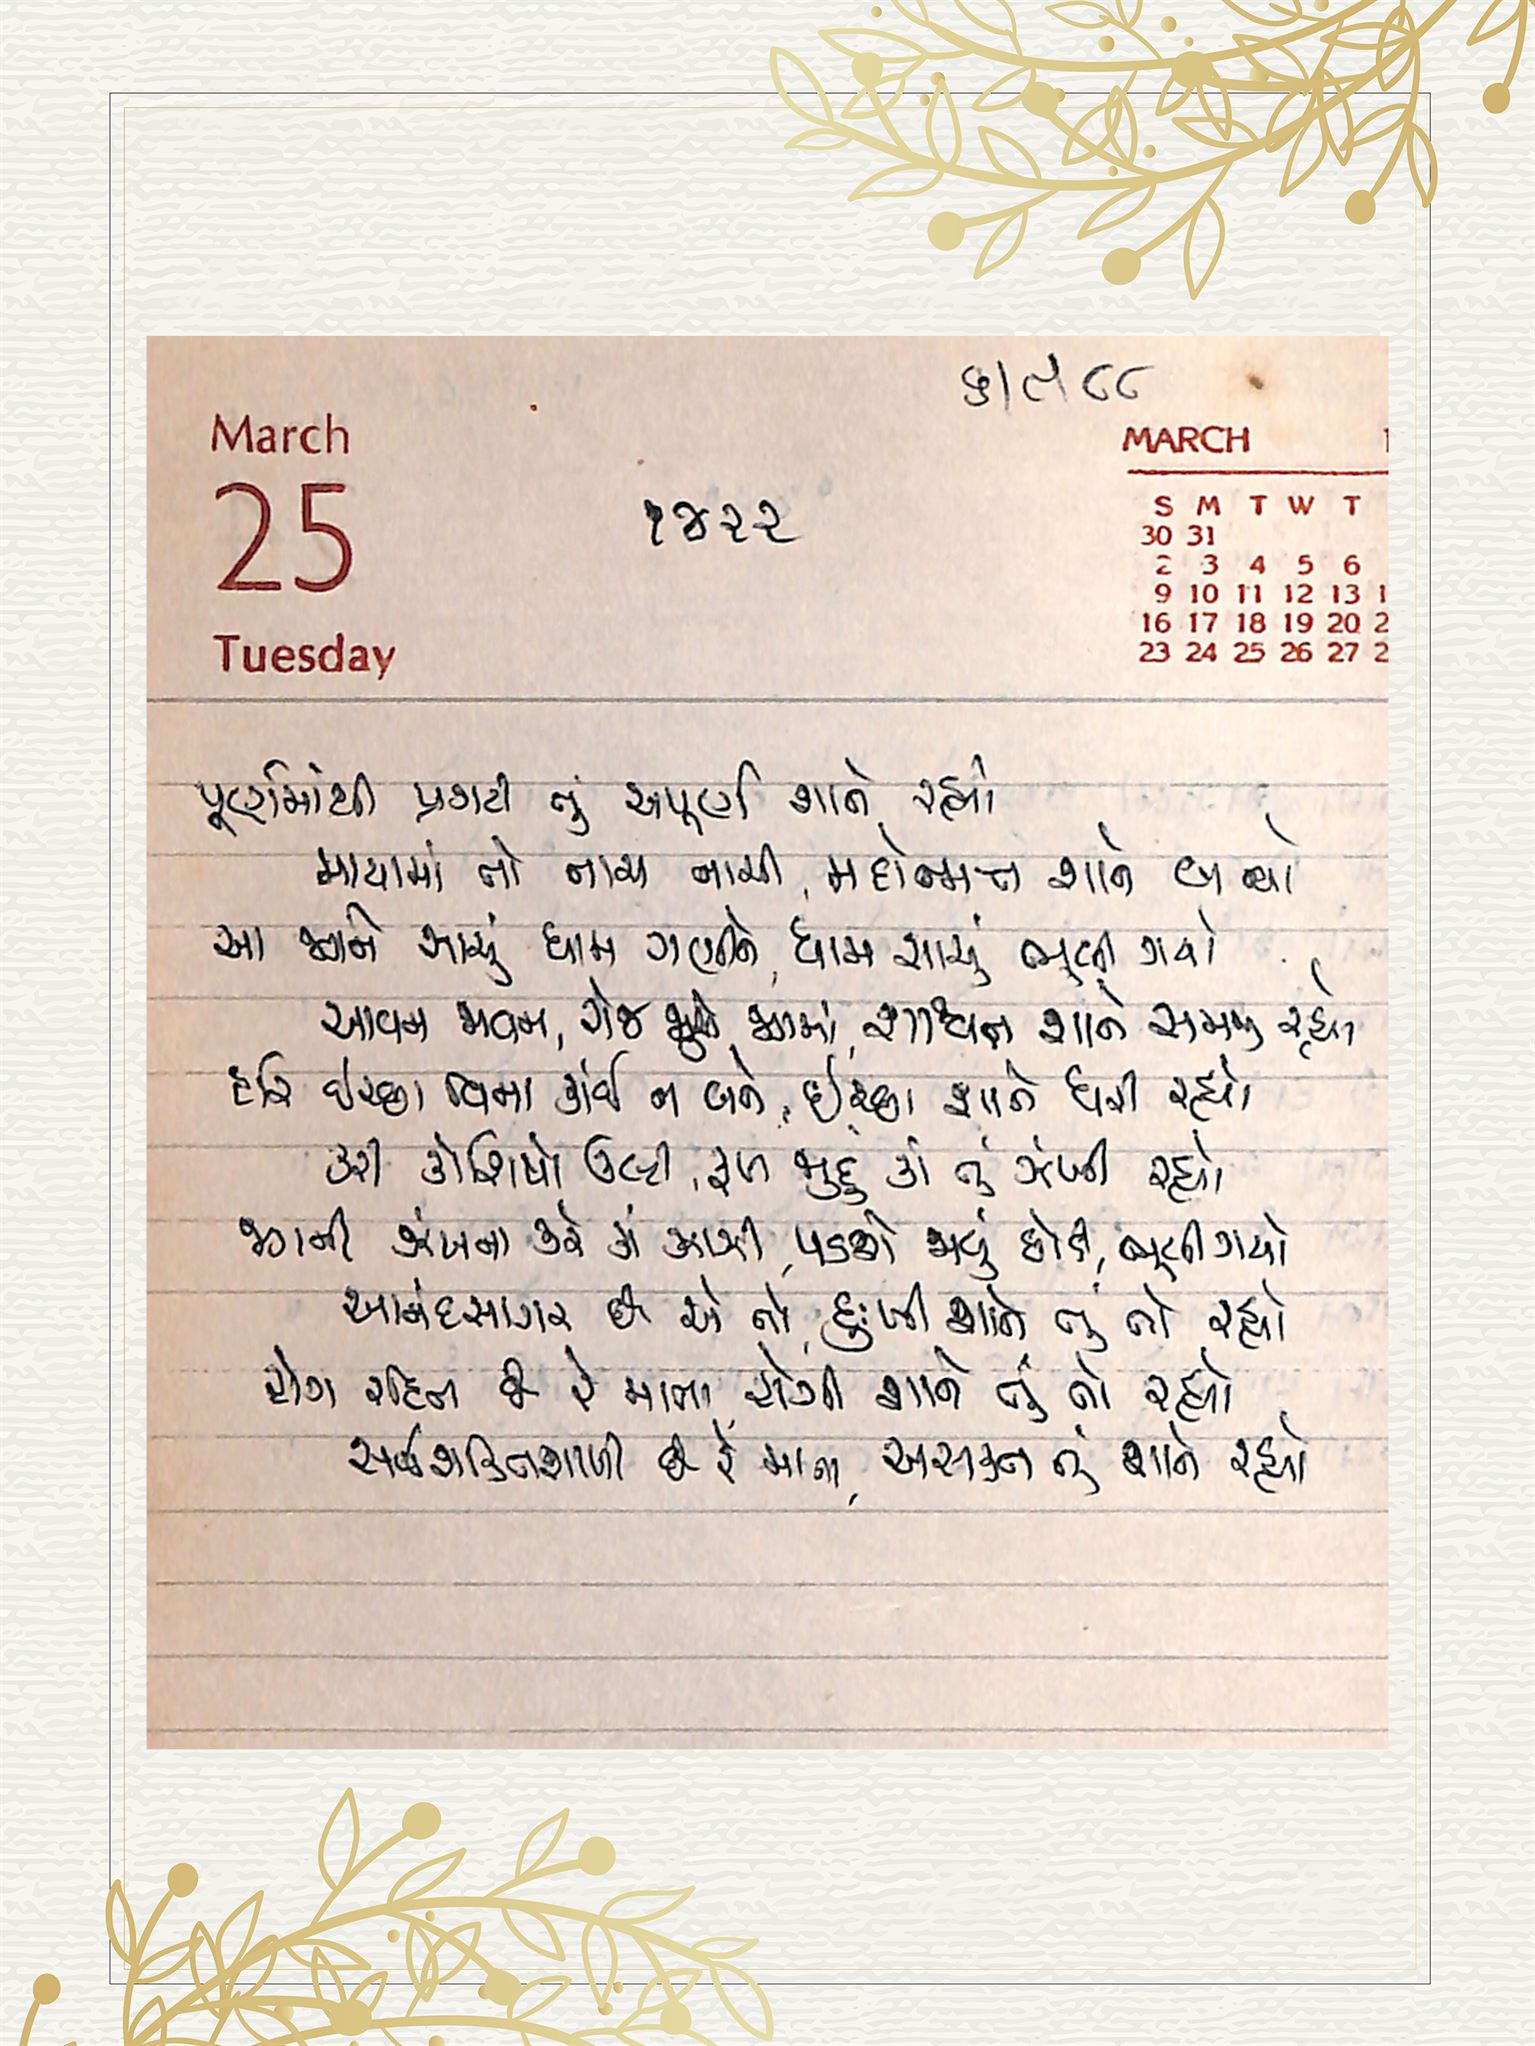 ૬/૯/૮૮
March
25
Tuesday
૧૪૨૨
MARCH
S M T W T
30 31
2 3 4 5 6
9 10 11 12 13
16 17 18 19 20
23 24 25 26 27
પૂર્ણમાંથી પ્રગટી તું અપૂર્ણ શાને રહ્યો
માયામાં તો નાચ નાચી, મદોન્મત્ત શાને બન્યો
આ જગને સાચું ધામ ગણીને, ધામ સાચું ભૂલી ગયો
આવન જાવન, રોજ જુએ જગમાં, શાશ્વત શાને સમજી રહ્યો
હરિ ઇચ્છા વિના કાંઈ ન બને, ઈચ્છા શાને ધરી રહ્યો
કરી કોશિષો ઉલ્ટી, ફળ જુદું કાં તું ઝંખી રહ્યો
જગની ઝંખના કરે તું જાગી, પડશે જવું છોડી, ભૂલી ગયો
આનંદસાગર છે એ તો, દુઃખી શાને તું તો રહ્યો
રોગ રહિત છે રે માતા, રોગી શાને તું તો રહ્યો
સર્વશક્તિશાળી છે રે માતા, અશક્ત તું શાને રહ્યો